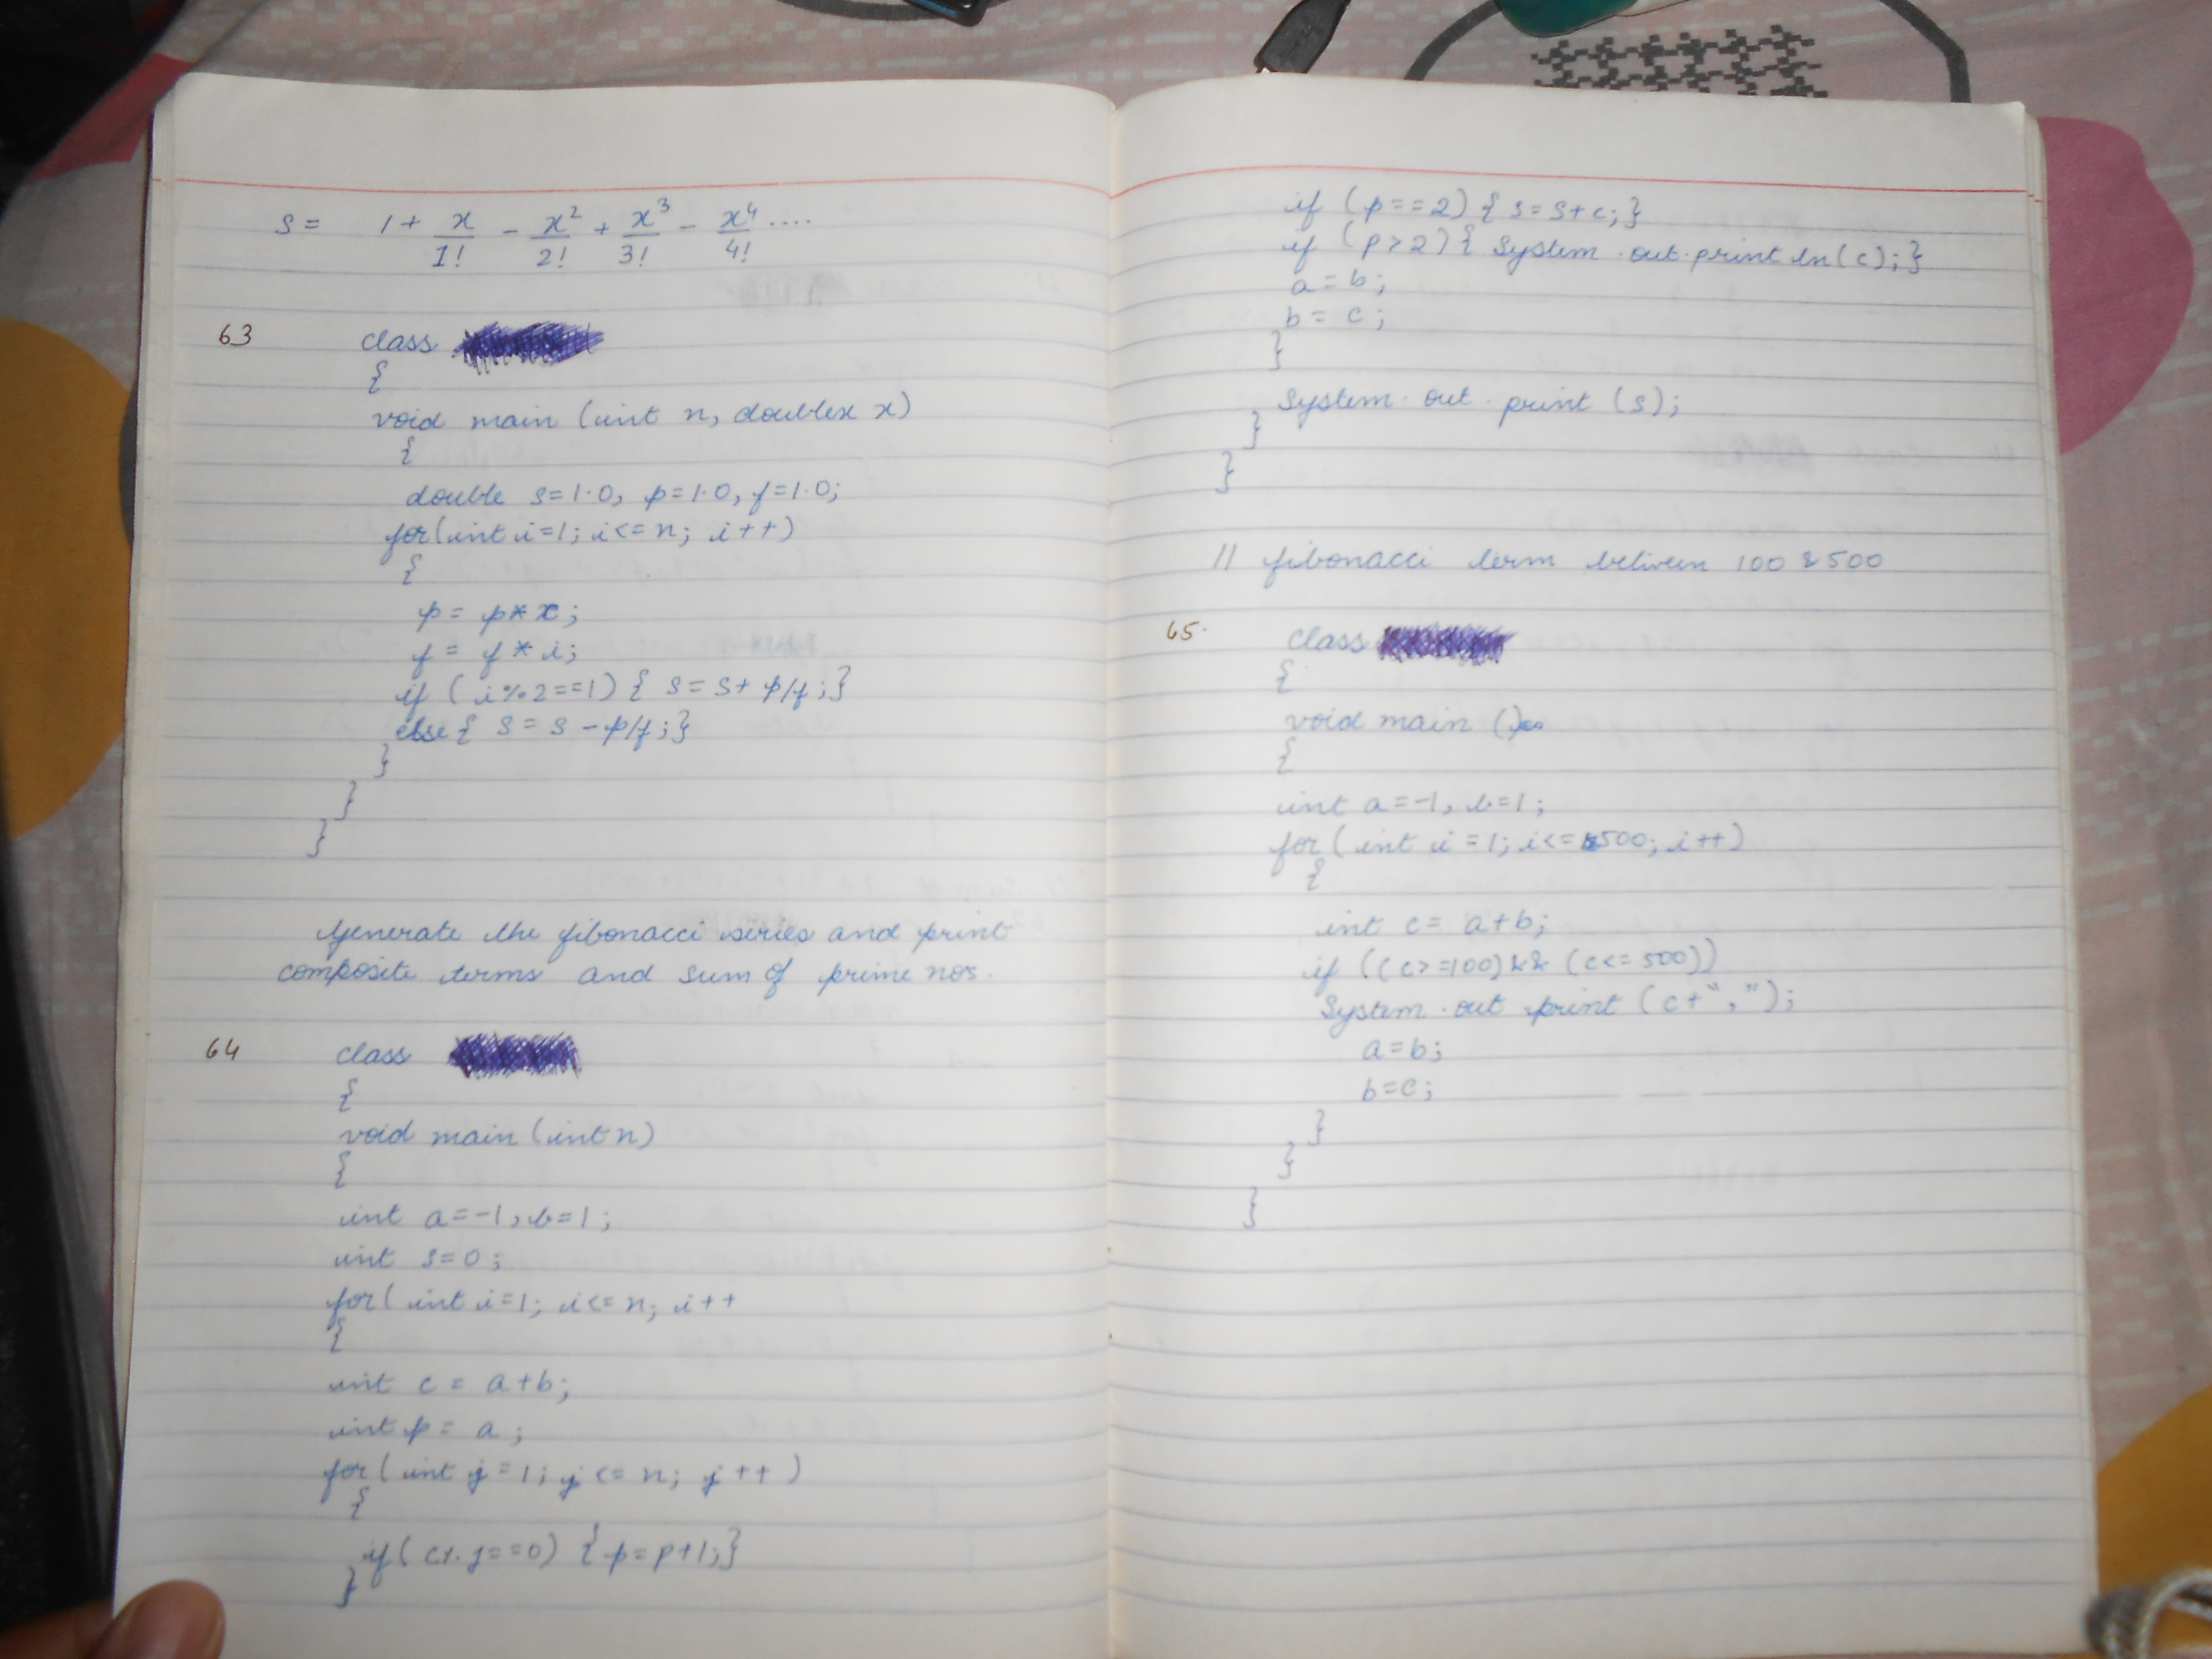 S = 1 + x/1! - x²/2! + x³/3! - x⁴/4! ....
63 class
{
void main (int n, doublex x)
{
double s=1.0, p=1.0, f=1.0;
for(int i=1; i<=n; i++)
{
p = p*x;
f = f*i;
if (i%2==1) { s = s+ p/f;}
else{ s = s - p/f;}
}
}
}
Generate the fibonacci series and print
composite terms and sum of prime nos.
64 class
{
void main (int n)
{
int a=-1, b=1;
int s=0;
for( int i=1; i<=n; i++
{
int c = a+b;
int p = a;
for( int j=1; j<=n; j++ )
{
if( c%j==0) { p=p+1;}
}
if (p==2) { s=s+c;}
if (p>2){ System.out.println(c);}
a=b;
b= c;
}
System.out.print (s);
}
}
// fibonacci term between 100 & 500
65. class
{
void main ()
{
int a=-1, b=1;
for( int i = 1; i<=500; i++)
{
int c= a+b;
if ((c>=100)&& (c<= 500))
System.out.print (c+",");
a=b;
b=c;
}
}
}